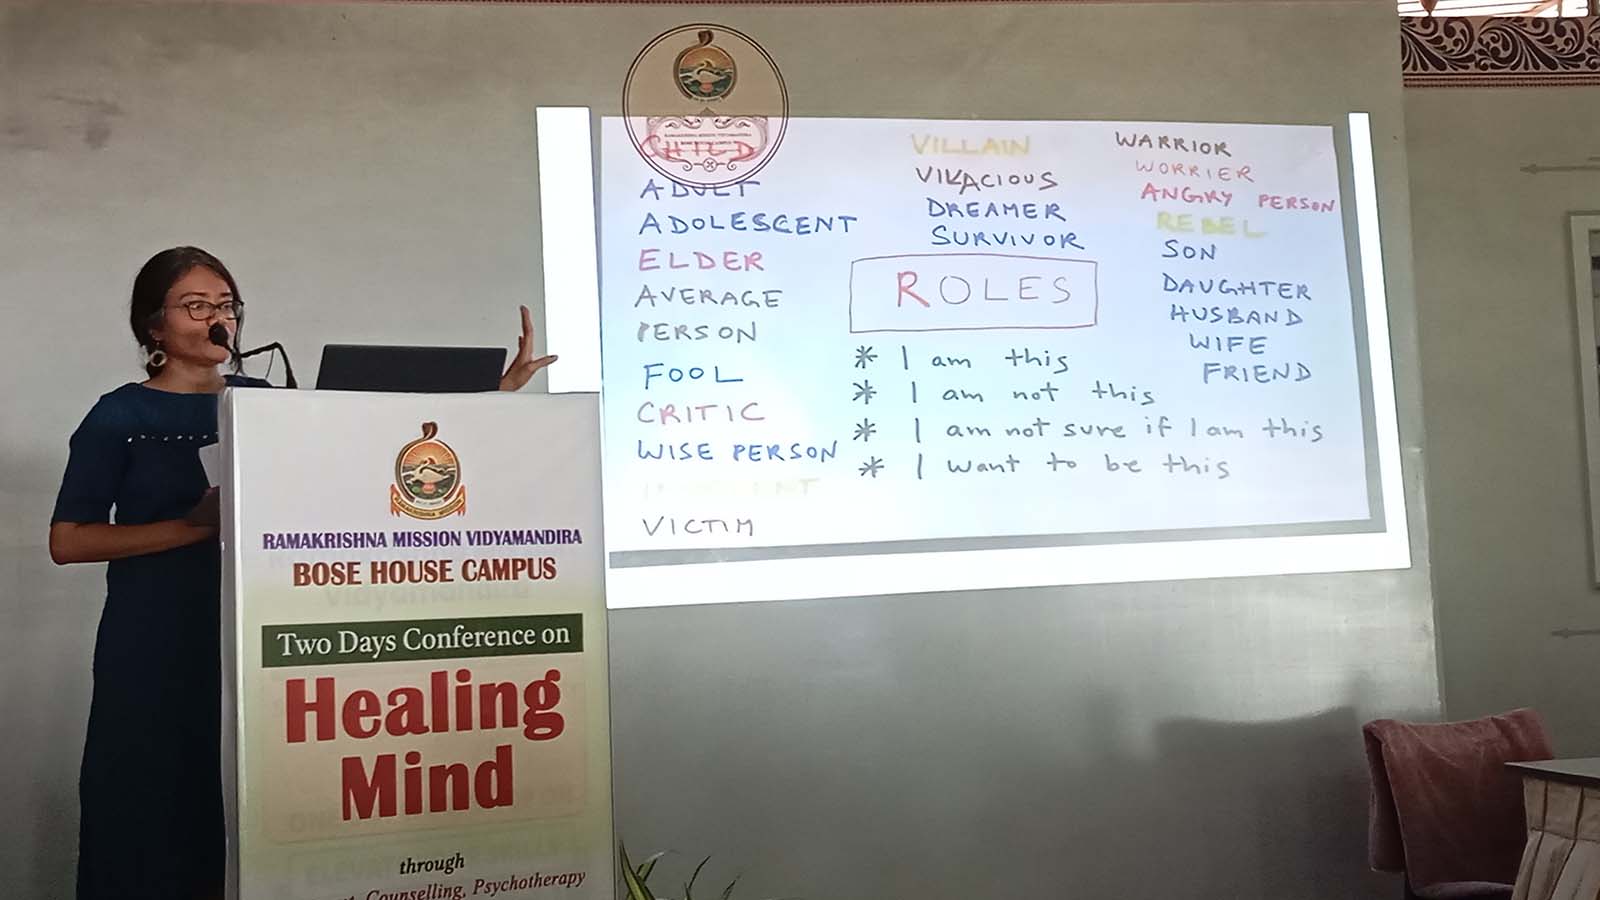 CHILD
ADULT
ADOLESCENT
ELDER
AVERAGE
PERSON
FOOL
CRITIC
WISE PERSON
VICTIM
VILLAIN
VIVACIOUS
DREAMER
SURVIVOR
ROLES
* I am this
* I am not this
* I am not sure if I am this
* I want to be this
WARRIOR
WORRIER
ANGRY PERSON
REBEL
SON
DAUGHTER
HUSBAND
WIFE
FRIEND
RAMAKRISHNA MISSION VIDYAMANDIRA
RAMAKRISHNA MISSION
RAMAKRISHNA MISSION VIDYAMANDIRA
BOSE HOUSE CAMPUS
Two Days Conference on
Healing
Mind
through
Counselling, Psychotherapy